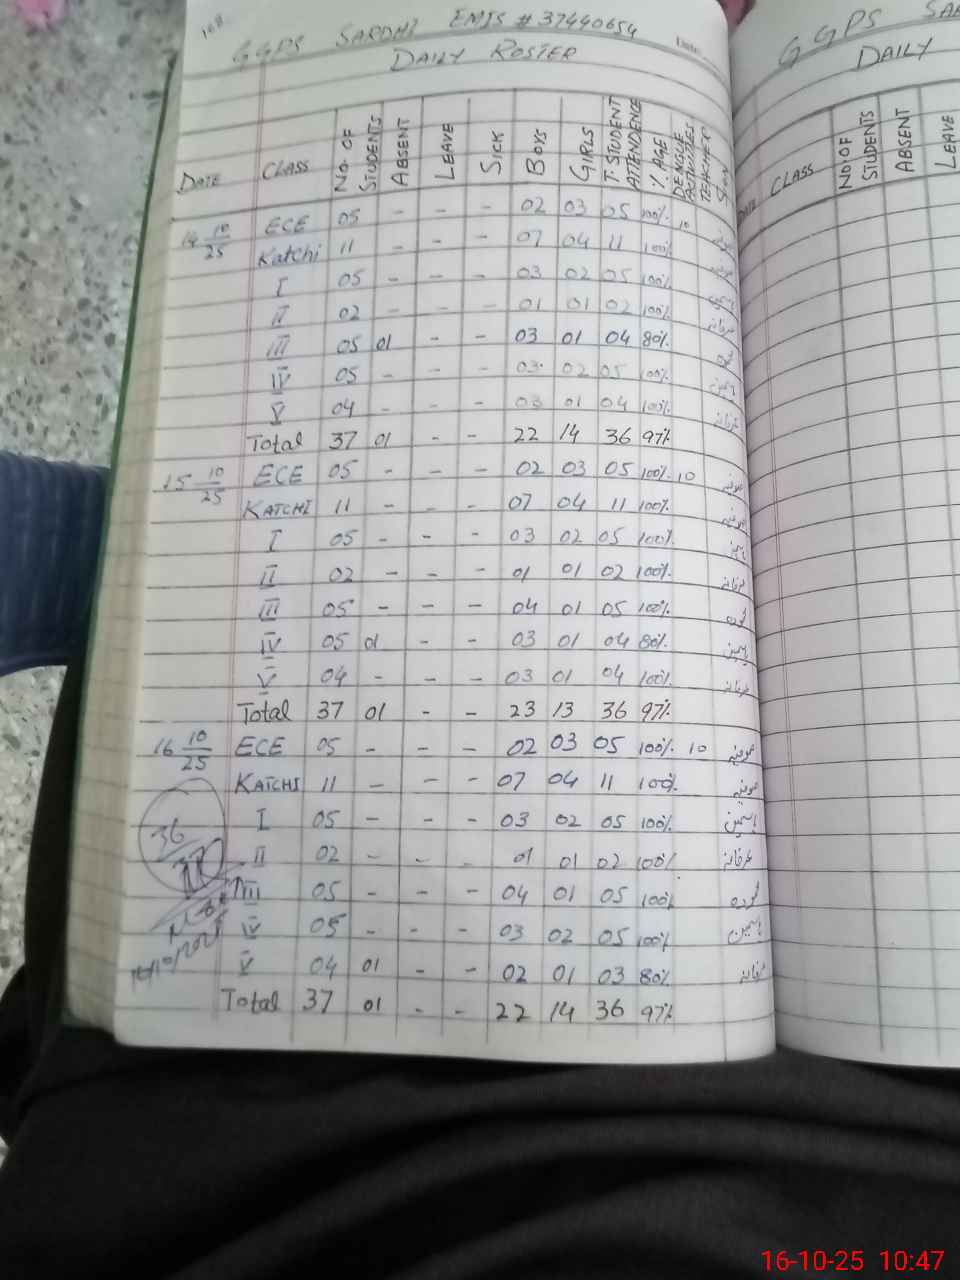 168
GGPS SARDHI EMIS # 37440654
Date:
DAILY ROSTER
DATE CLASS NO. OF STUDENTS ABSENT LEAVE SICK BOYS GIRLS T. STUDENT ATTENDENCE % AGE DENGUE ACTIVITIES TEACHER SIGN
14 10/25 ECE 05 - - - 02 03 05 100% 10 صوفیہ
Katchi 11 - - - 07 04 11 100% صوفیہ
I 05 - - - 03 02 05 100% یاسمین
II 02 - - - 01 01 02 100% عرفانہ
III 05 01 - - 03 01 04 80%
IV 05 - - - 03 02 05 100% یاسمین
V 04 - - - 03 01 04 100% عرفانہ
Total 37 01 - - 22 14 36 97%
15 10/25 ECE 05 - - - 02 03 05 100% 10 صوفیہ
KATCHI 11 - - - 07 04 11 100% صوفیہ
I 05 - - - 03 02 05 100% یاسمین
II 02 - - - 01 01 02 100% عرفانہ
III 05 - - - 04 01 05 100%
IV 05 01 - - 03 01 04 80% یاسمین
V 04 - - - 03 01 04 100% عرفانہ
Total 37 01 - - 23 13 36 97%
16 10/25 ECE 05 - - - 02 03 05 100% 10 صوفیہ
KATCHI 11 - - - 07 04 11 100% صوفیہ
I 05 - - - 03 02 05 100% یاسمین
36
II 02 - - - 01 01 02 100% عرفانہ
III 05 - - - 04 01 05 100%
IV 05 - - - 03 02 05 100% یاسمین
16/10/2025
V 04 01 - - 02 01 03 80% عرفانہ
Total 37 01 - - 22 14 36 97%
GGPS
DAILY
DATE CLASS NO. OF STUDENTS ABSENT LEAVE
16-10-25 10:47